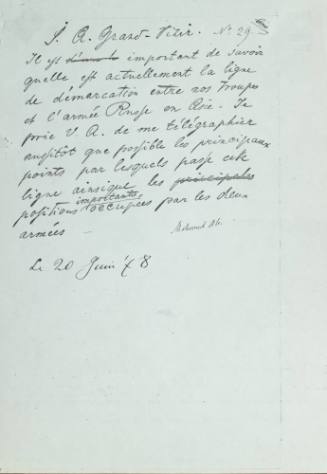 S. A. Grand-Vizir. No 29
Il est important de savoir
quelle est actuellement la ligne
de démarcation entre vos troupes
et l'armée Russe en Asie. Je
prie V. A. de me télégraphier
aussitôt que possible les principaux
points par lesquels passe cette
ligne ainsique les principales
importantes
positions occupées par les deux
armées —
Mehemed Ali
Le 20 Juin 78